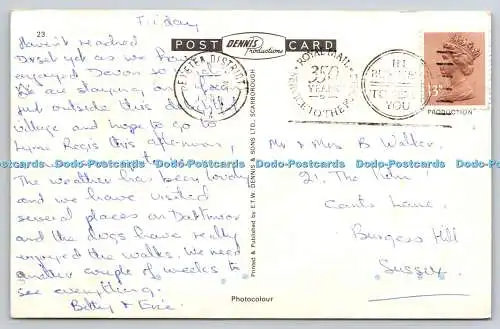 23
Friday
POST CARD
DENNIS
Productions
Haven't reached
Dorset yet as we have
enjoyed Devon so
We are staying on a farm
just outside this
village and hope to go to
Lyme Regis this afternoon,
The weather has been lovely
and we have visited
several places on Dartmoor
and the dogs have really
enjoyed the walks. We need
another couple of weeks to
see everything.
Betty & Eric
EXETER DISTRICT
ROYAL MAIL
350
YEARS
SERVICE TO THE
IN
BUSINESS
TO
YOU
PRODUCTION
Mr & Mrs B Walker,
21, The
Lane,
Burgess Hill
Sussex
Printed & Published by E.T.W. DENNIS & SONS LTD., SCARBOROUGH
Photocolour
Dodo-Postcards Dodo-Postcards Dodo-Postcards Dodo-Postcards Dodo-Postcards